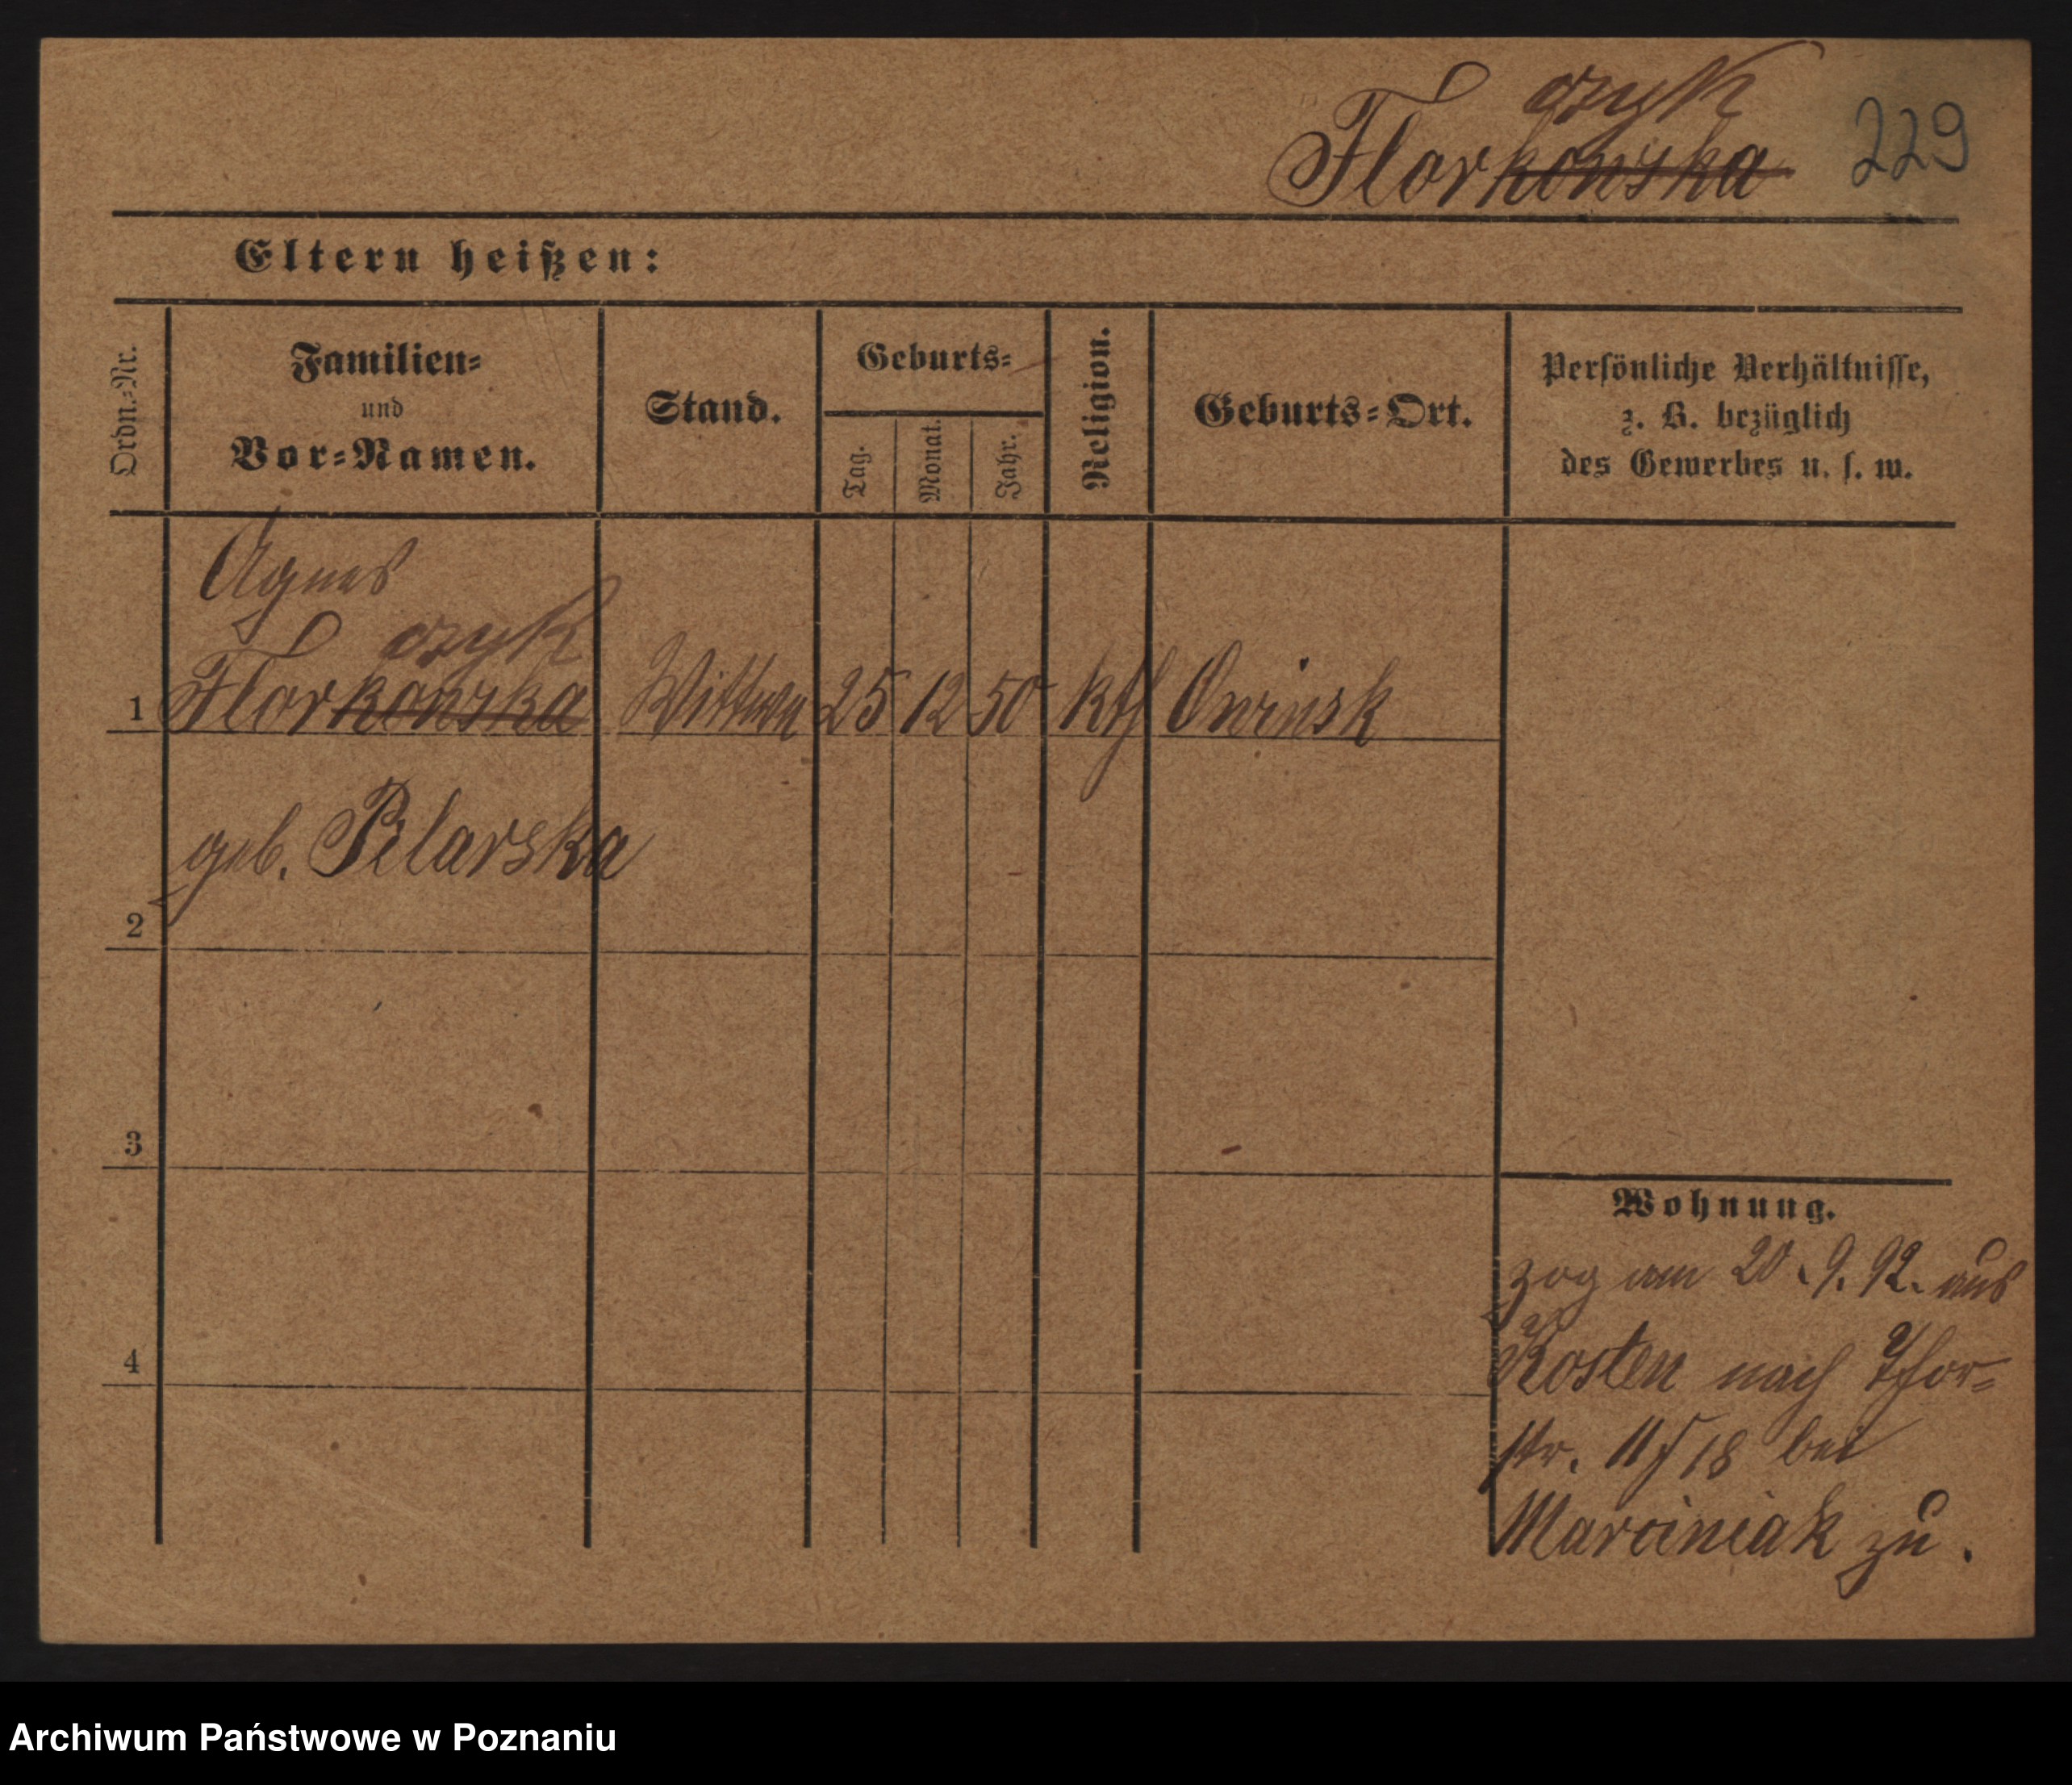 czyk
Florkowska 229
Eltern heißen:
Ordn.-Nr.
Familien-
und
Vor-Namen.
Stand.
Geburts-
Tag.
Monat.
Jahr.
Religion.
Geburts-Ort.
Persönliche Verhältnisse,
z. B. bezüglich
des Gewerbes u. s. w.
Agnes
czyk
1 Florkowska Wittwe 25 12 50 kth Owinsk
geb. Pilarska
2
3
4
Wohnung.
zog am 20.9.92. aus
Kosten nach Thor-
str. 18 bei
Marciniak zu.
Archiwum Państwowe w Poznaniu